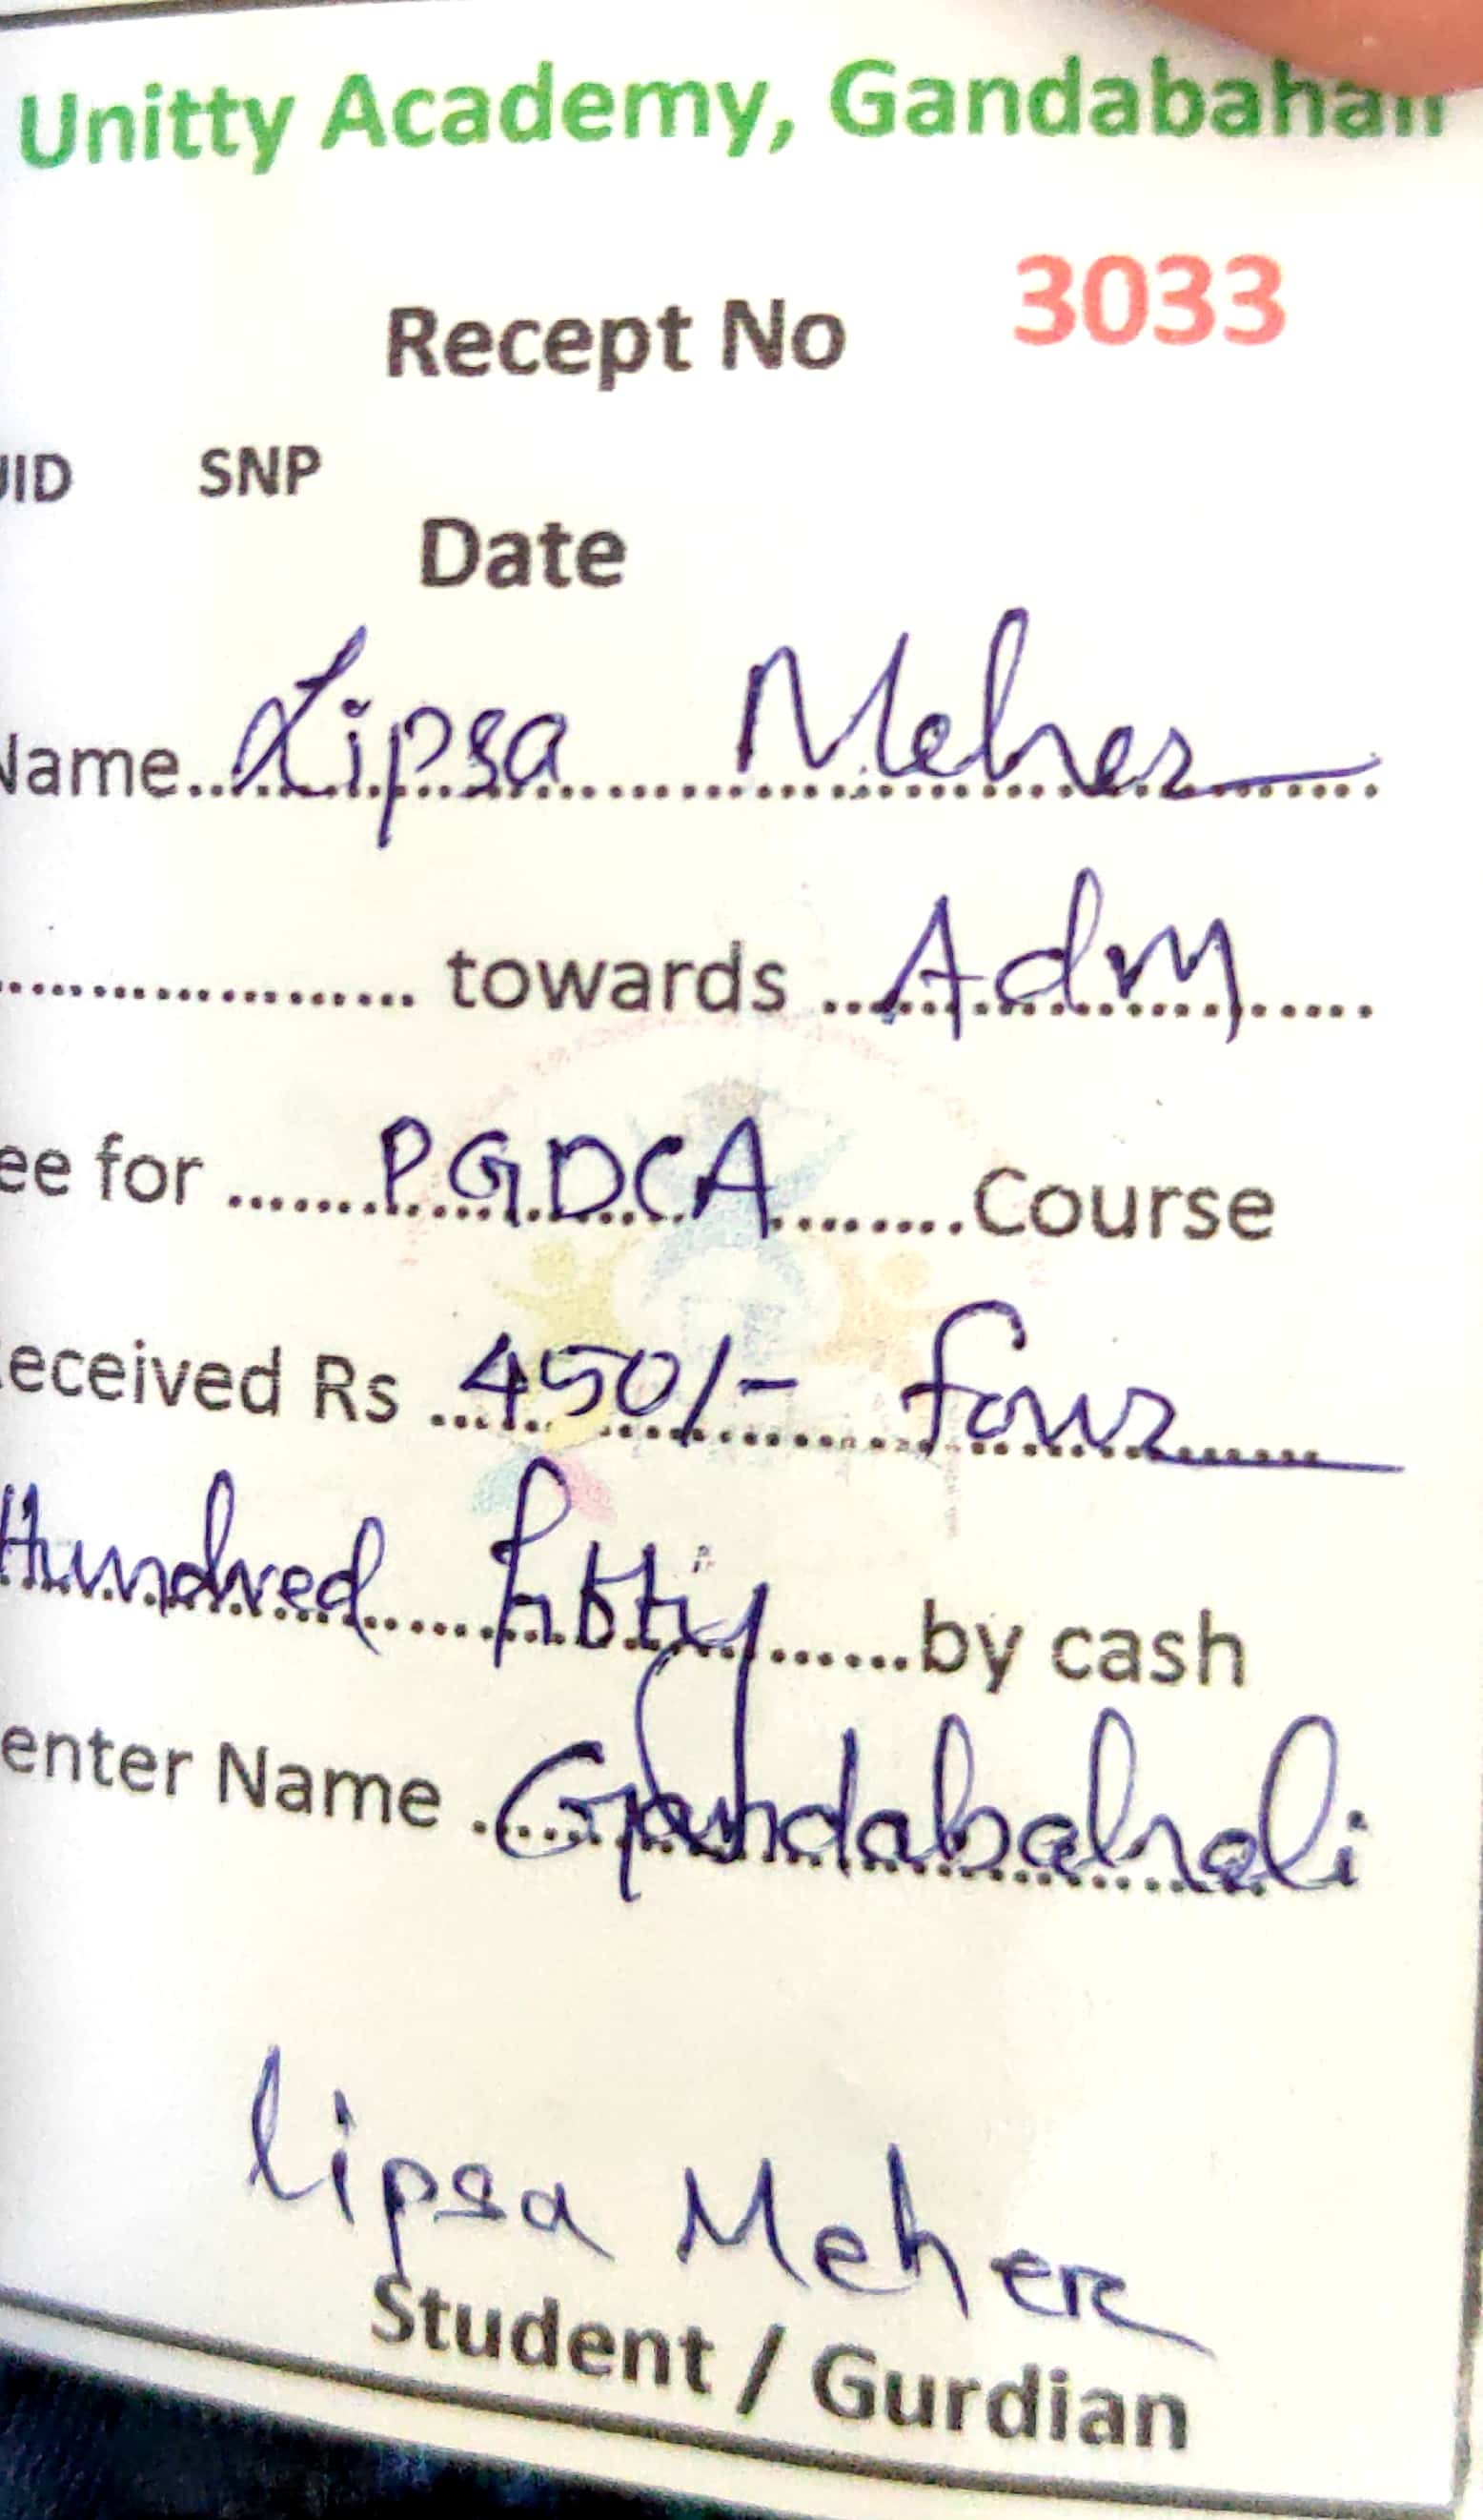 Unitty Academy, Gandabahali
Recept No 3033
UID SNP
Date
Name Lipsa Meher
towards Adm
ee for PGDCA Course
eceived Rs 450/- four
Hundred fifty by cash
enter Name Gandabahali
lipsa Meher
Student / Gurdian